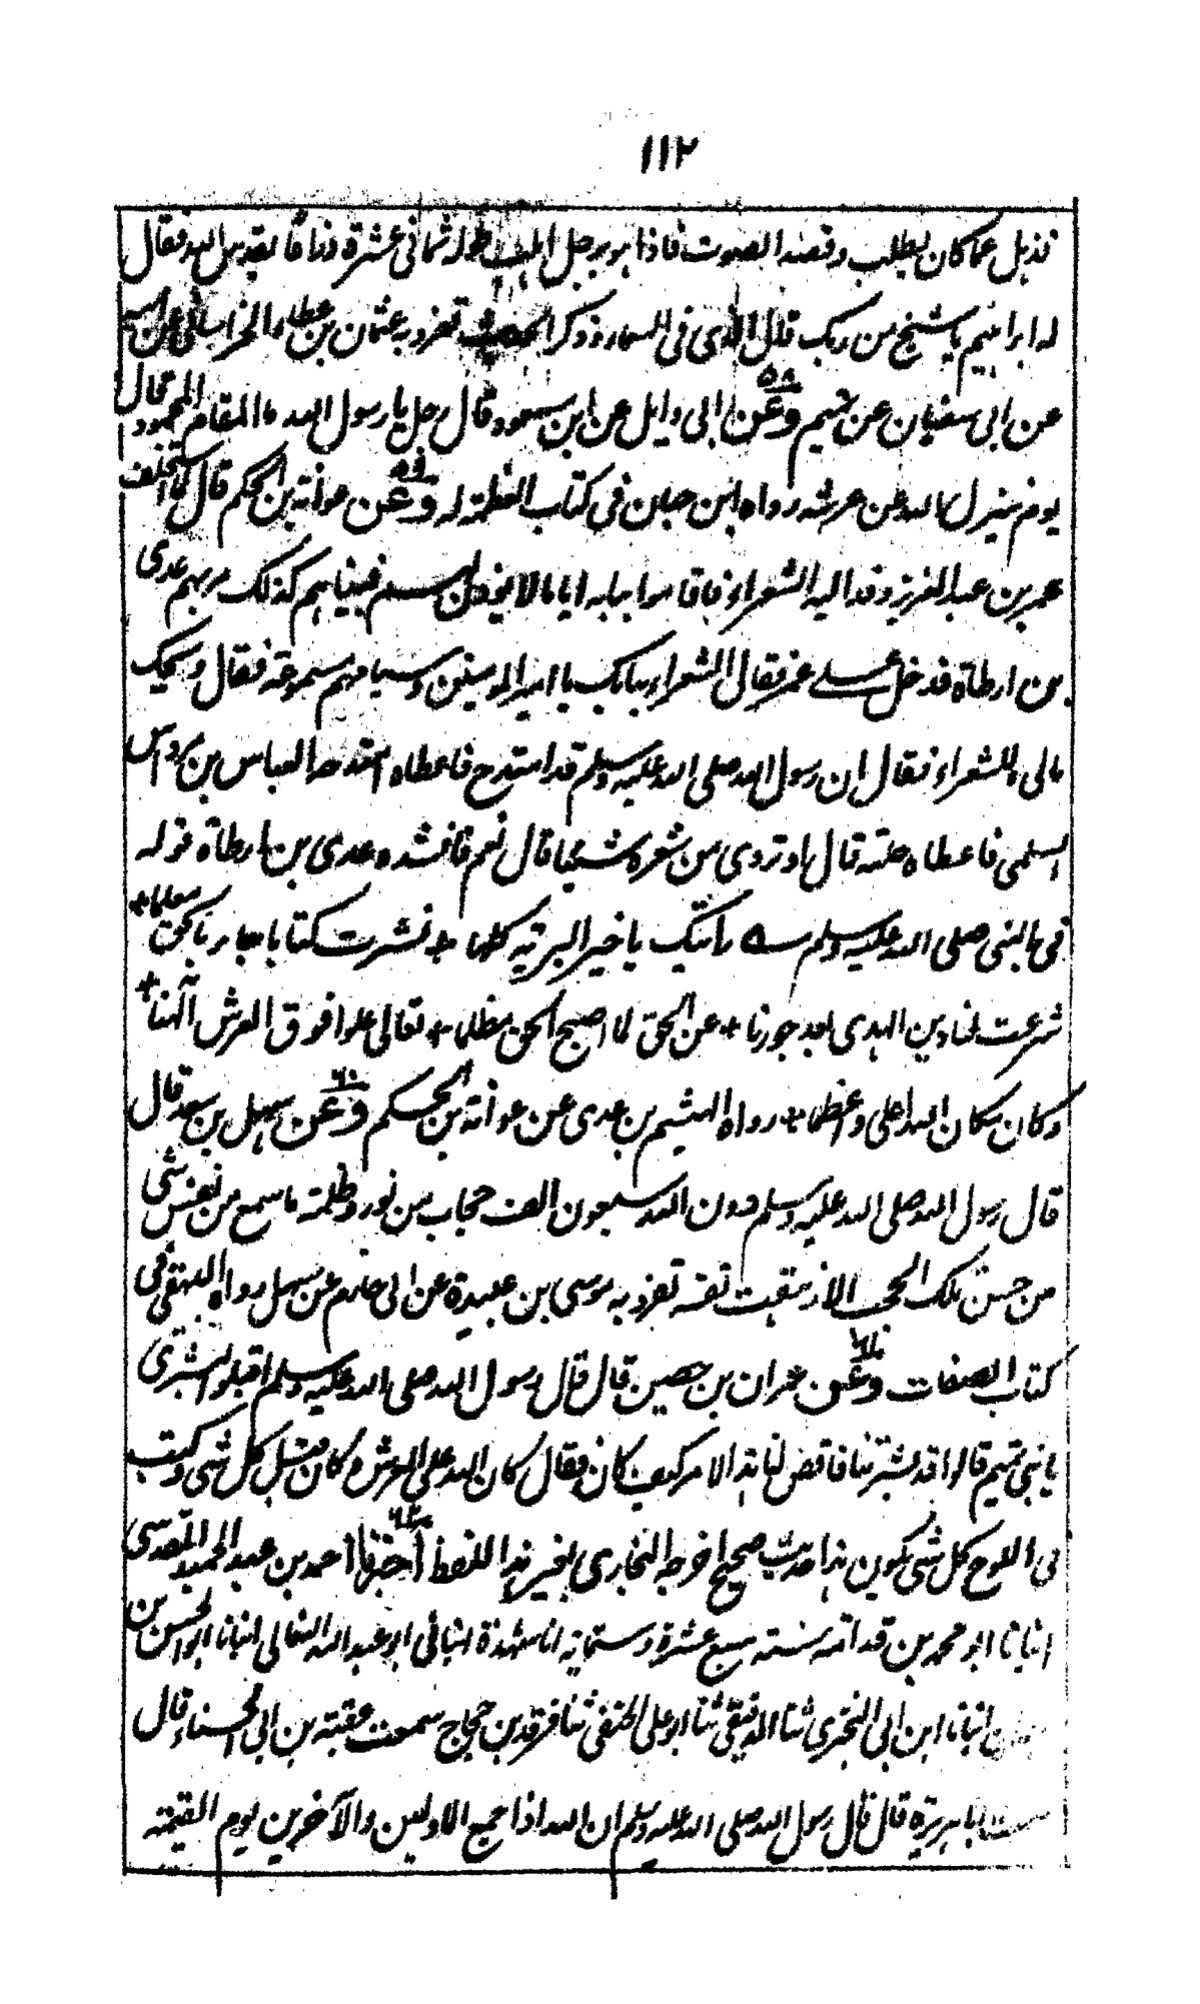 ١١٢
فذهل عما كان يطلب وقصد الصوت فاذا هو برجل اهلب طوله ثمانى عشرة ذراعا يقدس الله فقال
له ابراهيم يا شيخ من ربك قال الذى فى السماء وذكر الحديث تفرد به عثمان بن عطاء الخراسانى عن ابيه
عن ابى سفيان عن تميم ٥٨ وعن ابى وايل عن ابن مسعود قال رجل يا رسول الله ما المقام المحمود قال
يوم ينزل الله عن عرشه رواه ابن حبان فى كتاب العظمة له ٥٩ وعن عوانة بن الحكم قال لما استخلف
عمر بن عبد العزيز وفد اليه الشعراء فاقاموا ببابه اياما لا يوذن لهم فبينا هم كذلك مر بهم عدى
بن ارطاة فدخل على عمر فقال الشعراء ببابك يا امير المومنين وسهامهم مسمومة فقال ويحك
مالى وللشعراء فقال ان رسول الله صلى الله عليه وسلم قد امتدح فاعطاه امتدحه العباس بن مرداس
السلمى فاعطاه حلة قال او تروى من شعره شيئا قال نعم فانشده عدى بن ارطاة قوله
فى النبى صلى الله عليه وسلم ؎ رايتك يا خير البرية كلها + نشرت كتابا جاء بالحق معلما +
شرعت لنا دين الهدى بعد جورنا + عن الحق لما اصبح الحق مظلما + تعالى علوا فوق العرش الهنا +
وكان مكان الله اعلى واعظما + رواه الهيثم بن عدى عن عوانة بن الحكم ٦٠ وعن سهل بن سعد قال
قال رسول الله صلى الله عليه وسلم دون الله سبعون الف حجاب من نور وظلمة ما سمع من نفس شى
من حسن تلك الحجب الا زهقت نفسه تفرد به موسى بن عبيدة عن ابى حازم عن سهل رواه البيهقى فى
كتاب الصفات ٦١ وعن عمران بن حصين قال قال رسول الله صلى الله عليه وسلم اقبلوا البشرى
يا بنى تميم قالوا قد بشرتنا فاقض لنا هذا الامر كيف كان فقال كان الله على العرش وكان قبل كل شى وكتب
فى اللوح كل شى يكون هذا حديث صحيح اخرجه البخارى بغير هذا اللفظ ٦٢ أخبرنا احمد بن عبد الحميد المقدسى
انبانا ابو محمد بن قدامة سنة سبع عشرة وستمائة انا شهدة انبا ابو عبد الله النعالى انبانا ابو الحسن بن
انبانا ابن ابى البخترى ثنا الدقيقى ثنا ابو على الحنفى ثنا فرقد بن حجاج سمعت عقبة بن ابى الحسناء قال
سمعت ابا هريرة قال قال رسول الله صلى الله عليه وسلم ان الله اذا جمع الاولين والآخرين يوم القيمة